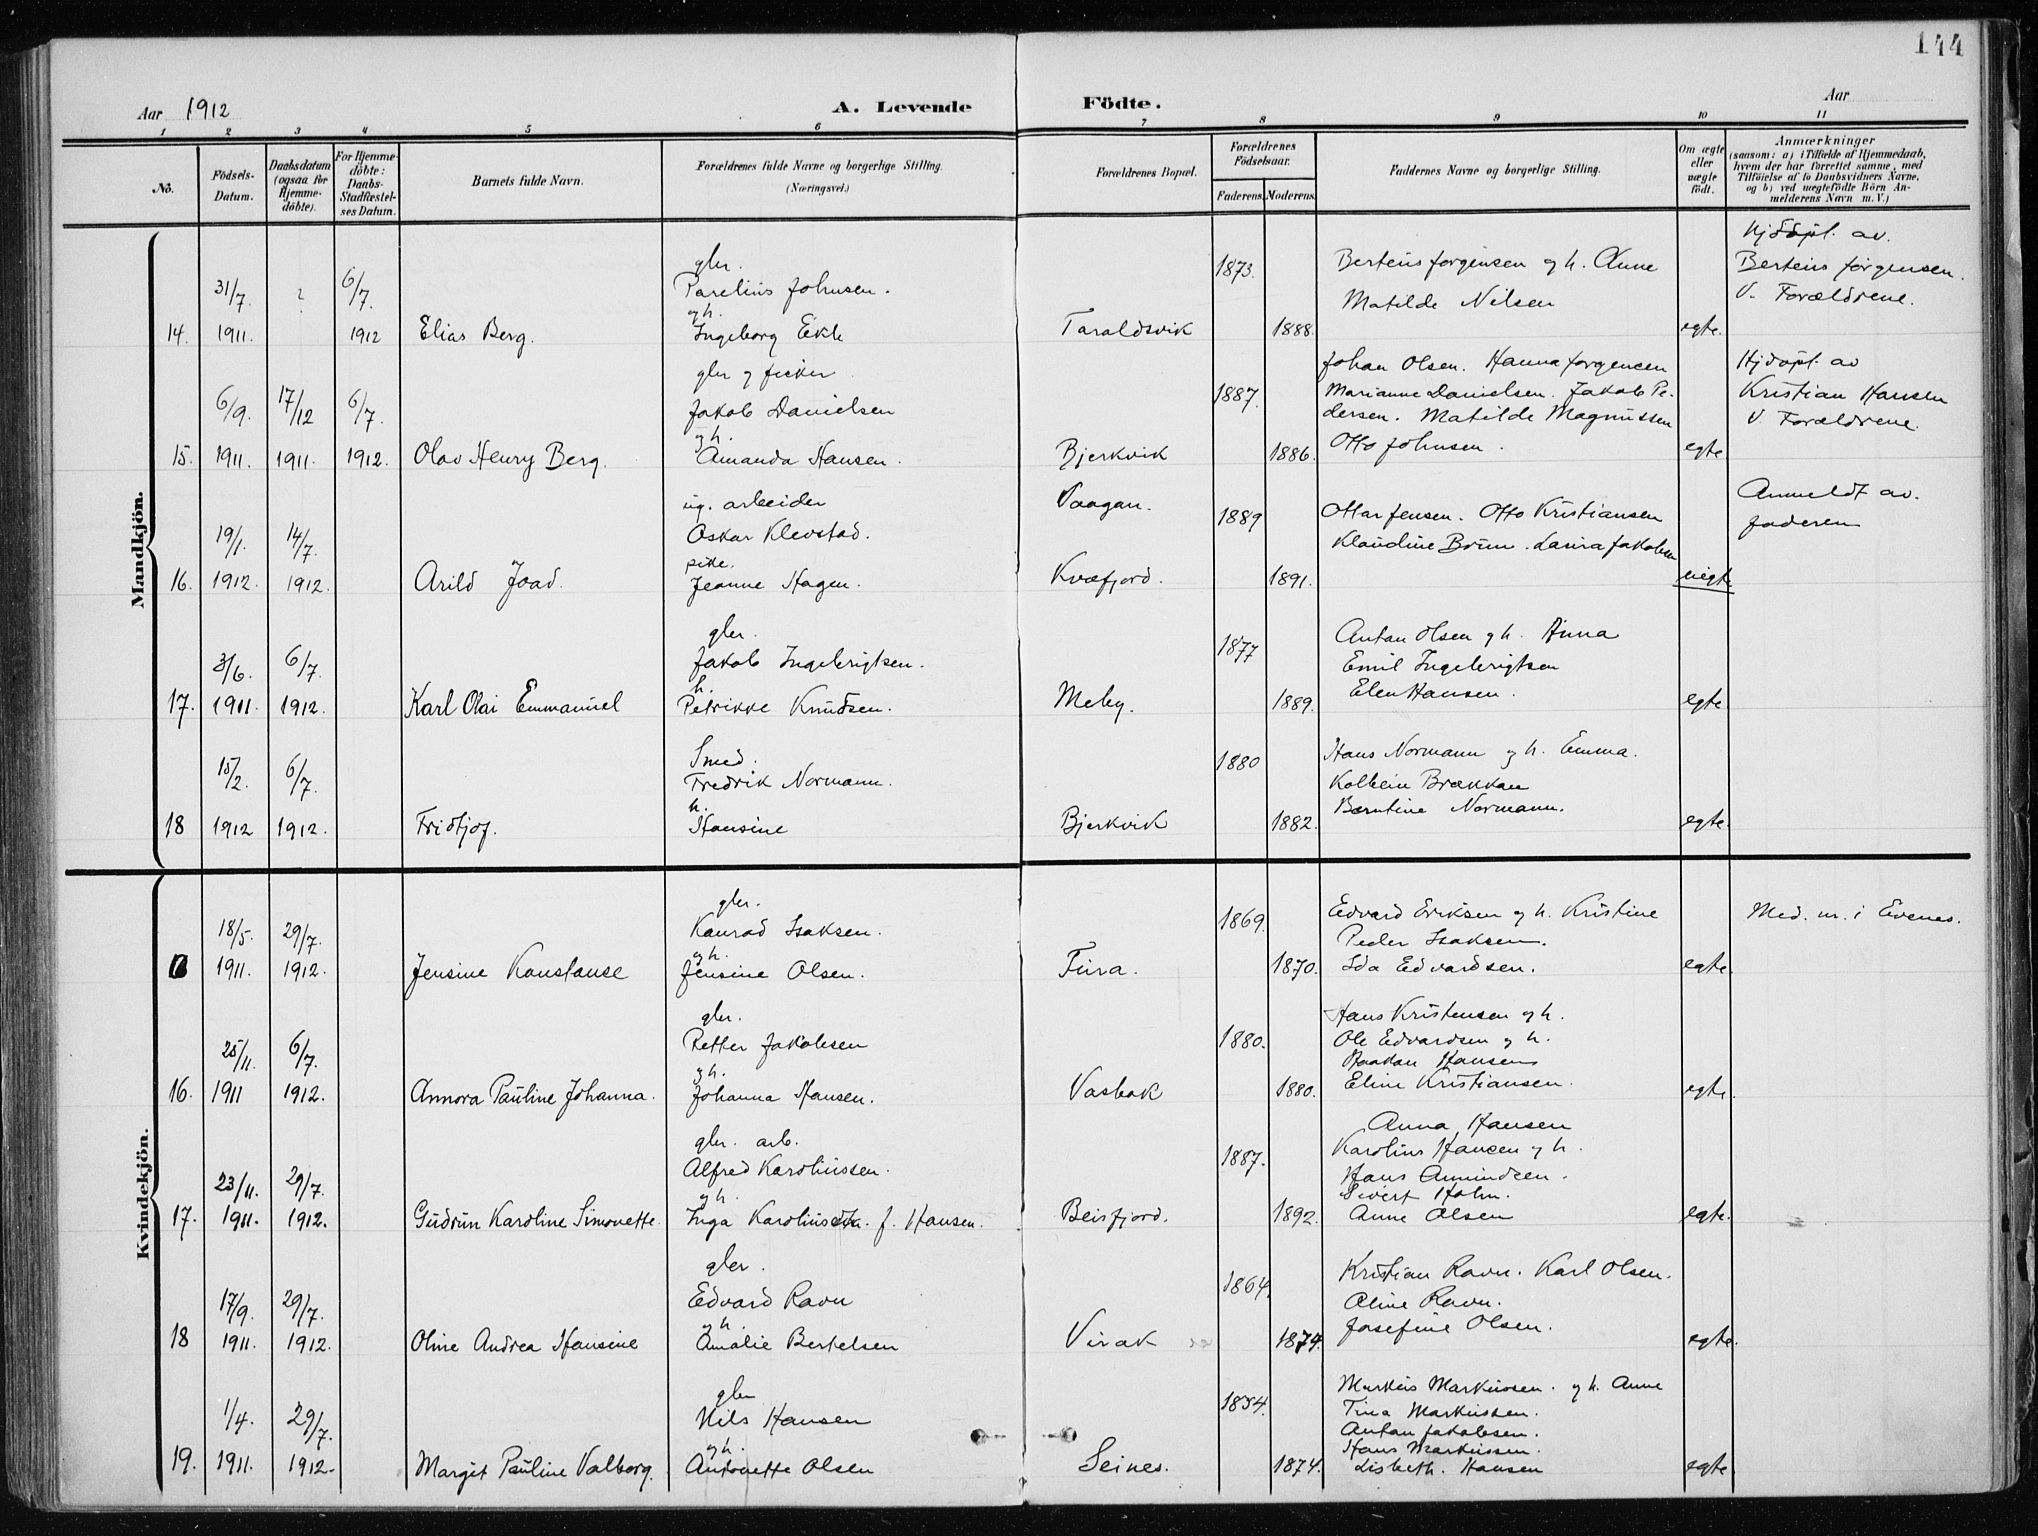 144
Aar 1912 A. Levende Födte. Aar
1 2 3 4 5 6 7 8 9 10 11
No.
Födsels-Datum.
Daabsdatum (ogsaa for Hjemme-döbte).
For Hjemme-döbte: Daabs-Stadfæstel-ses Datum.
Barnets fulde Navn.
Forældrenes fulde Navne og borgerlige Stilling.
(Næringsvei.)
Forældrenes Bopæl.
Forældrenes Födselsaar.
Faderens. Moderens.
Faddernes Navne og borgerlige Stilling.
Om ægte eller uægte födt.
Anmærkninger
(saasom: a) i Tilfælde af Hjemmedaab,
hvem der har forrettet samme, med
Tilföielse af to Daabsvidners Navne,
og b) ved uægtefödte Börn An-
melderens Navn m. V.)
Mandkjön.
gbr. 1873. Berteus Jørgensen og h. Anne Hjdøpt. av.
31/7. ? 6/7. Parelius Johnsen. Matilde Nilsen Berteus Jørgensen.
og h. V. Forældrene.
14. 1911. 1912 Elias Berg. Ingeborg Taraldsvik 1888. egte.
gbr og fisker Johan Olsen. Hanna Jørgensen Hjdøpt av
6/9. 17/12 6/7. Jakob Danielsen 1887. Marianne Danielsen. Jakob Pe- Kristian Hansen
og h. dersen. Matilde Magnussen V. Forældrene.
15. 1911. 1911. 1912. Olav Henry Berg. Amanda Hansen. Bjerkvik 1886. Otto Johnsen. egte
ug. arbeider Vaagan. Anmeldt av.
19/1. 14/7. Oskar Klevstad. 1889 Ottar Jensen. Otto Kristiansen faderen
pike. Klaudine Brun. Laura Jakobsen
16. 1912. 1912. Arild Joad. Jeanne Hagen. Kvæfjord. 1891. uegte
gbr. Antan Olsen og h. Anna
3/6. 6/7. Jakob Ingebrigtsen. 1877 Emil Ingebrigtsen
h. Elen Hansen.
17. 1911. 1912. Karl Olai Emmanuel Petrikke Knudsen. Meby. 1889. egte
Smed. Hans Normann og h. Emma.
15/2. 6/7. Fredrik Normann. 1880 Kolbein Brækkan
h. Berntine Normann.
18 1912 1912. Fridtjof. Hansine Bjerkvik 1882. egte.
Kvindekjön.
gbr. 1869. Edvard Eriksen og h. Kristine Med. m. i Evenes.
18/5. 29/7. Konrad Isaksen. Peder Isaksen.
og h.
1911. 1912. Jensine Konstanse Jensine Olsen. Fura. 1870. Ida Edvardsen. egte.
gbr. Hans Kristensen og h.
25/11. 6/7. Petter Jakobsen 1880. Ole Edvardsen og h.
og h. Haakan Hansen
16. 1911 1912. Annora Pauline Johanna. Johanna Hansen. Vasbak 1880. Eline Kristiansen. egte.
gbr. arb. Anna Hansen
23/11. 29/7. Alfred Karoliussen. 1887. Karolius Hansen og h.
og h. Hans Amundsen.
Sivert Holm.
17. 1911. 1912. Gudrun Karoline Simonette. Inga f. Hansen. Beisfjord. 1892. Anne Olsen egte.
gbr. Kristian Ravn. Karl Olsen.
17/9. 29/7. Edvard Ravn 1864. Aline Ravn.
og h. Josefine Olsen.
18 1911. 1912. Oline Andrea Hansine Amalie Bertelsen Virak 1874. egte.
gbr Markus Markussen. og h. Anne
1/4. 29/7. Nils Hansen 1854. Tina Markussen.
og h. Antan Jakobsen.
Hans Markussen.
19. 1911. 1912. Margit Pauline Valborg. Antonette Olsen Seines. 1874. Lisbeth. Hansen egte.